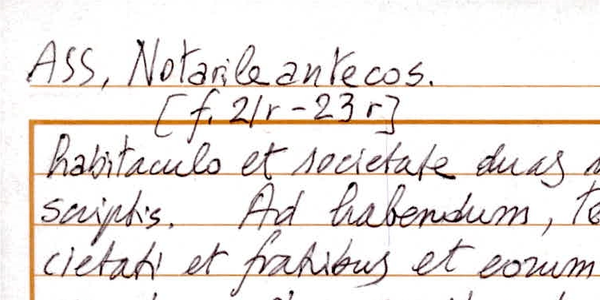 ASS, Notarile antecos.
[f. 21r - 23r]
habitaculo et societate duas
scriptis. Ad habendum, te
cietati et fratribus et eorum